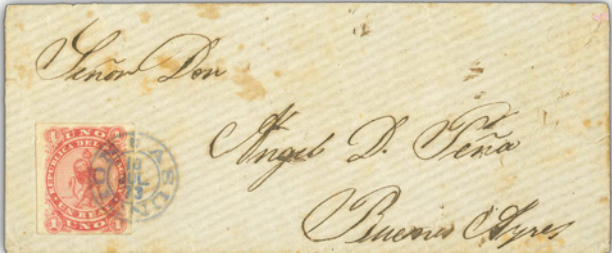 Señor Don
Angel D. Peña
Buenos Ayres
1 UNO 1
REPUBLICA DEL PARAGUAY
UN REAL
1 UNO 1
ASUN
18
JUL
73